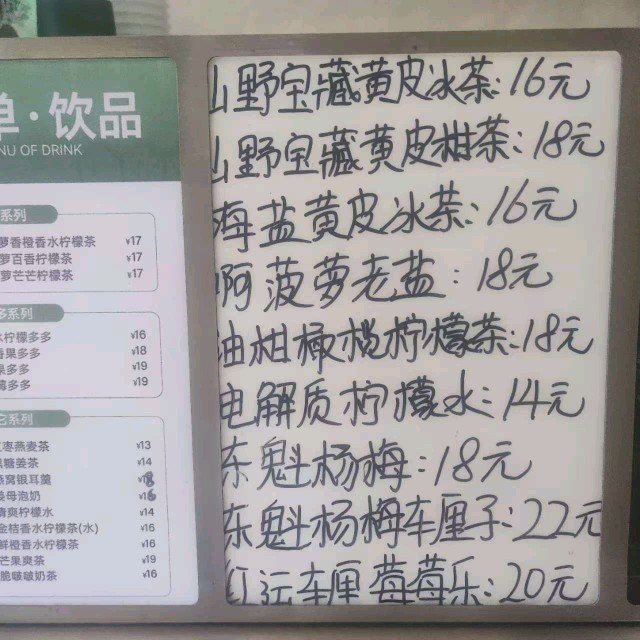 单·饮品
NU OF DRINK
系列
萝香橙香水柠檬茶 ¥17
萝百香柠檬茶 ¥17
萝芒芒柠檬茶 ¥17
多系列
水柠檬多多 ¥16
香果多多 ¥18
果多多 ¥19
莓多多 ¥19
它系列
红枣燕麦茶 ¥13
黑糖姜茶 ¥14
燕窝银耳羹
姜母泡奶
清爽柠檬水 ¥14
金桔香水柠檬茶(水) ¥16
鲜橙香水柠檬茶 ¥16
芒果爽茶 ¥19
脆啵啵奶茶 ¥16
山野宝藏黄皮冰茶:16元
山野宝藏黄皮柑茶:18元
海盐黄皮冰茶:16元
啊菠萝老盐:18元
油柑橄榄柠檬茶:18元
电解质柠檬水:14元
东魁杨梅:18元
东魁杨梅车厘子:22元
红运车厘莓莓乐:20元